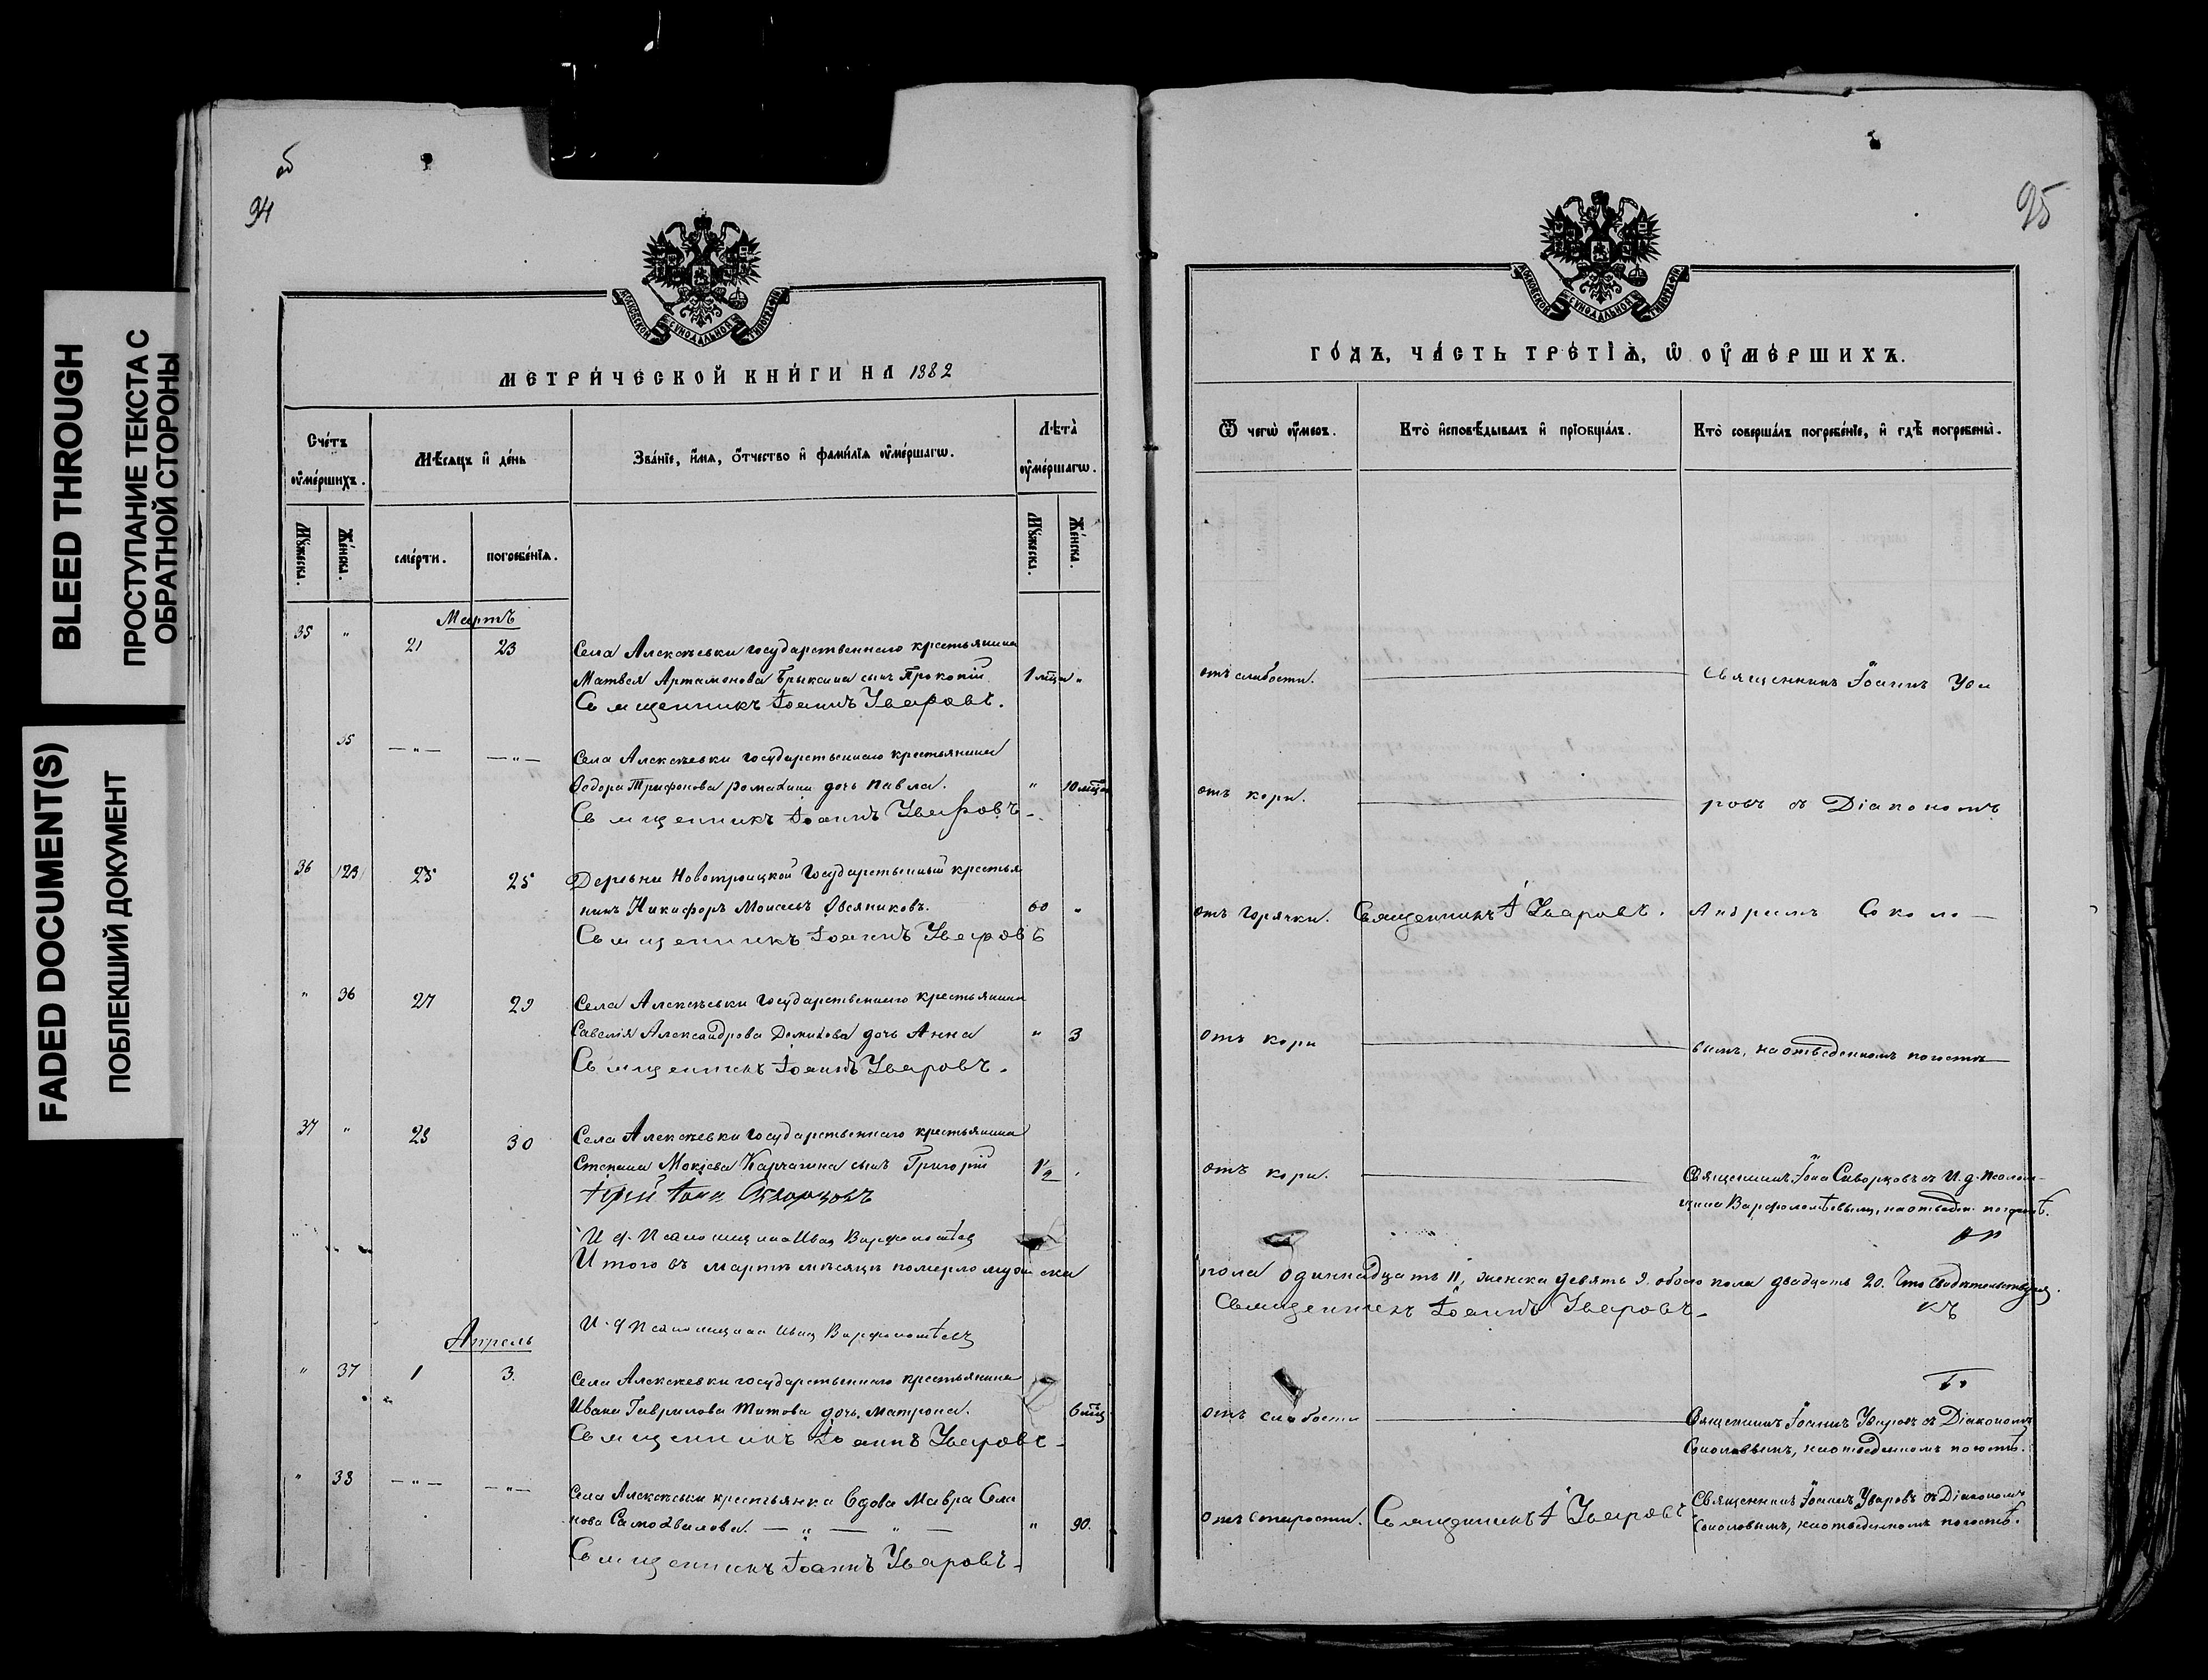 BLEED THROUGH
ПРОСТУПАНИЕ ТЕКСТА С
ОБРАТНОЙ СТОРОНЫ
FADED DOCUMENT(S)
ПОБЛЕКШИЙ ДОКУМЕНТ
об
94
МОСКОВСКОЙ СѴНОДАЛЬНОЙ ТИПОГРАФІИ
МЕТРИ́ЧЕСКОЙ КНИ́ГИ НА 1882
Сче́тъ ᲂу҆ме́ршихъ.
Мѣ́сяцъ и҆ де́нь
Зва́нїе, и҆́мѧ, ѻ҆́тчество и҆ фами́лїѧ ᲂу҆ме́ршагѡ.
Лѣта̀ ᲂу҆ме́ршагѡ.
Мꙋ́жеска.
Же́нска.
сме́рти.
погребе́нїѧ.
Мꙋ́жеска.
Же́нска.
Мартъ
35 " 21 23 Села Алексѣевки государственнаго крестьянина
Матвея Артамонова Брыксина сынъ Прокопій 1 мца "
Священникъ Іоаннъ Уваровъ.
35 — " — — " — Села Алексѣевки государственнаго крестьянина
Ѳедора Трифонова Ромахина дочь Павла. " 10 мца
Священникъ Іоаннъ Уваровъ.
36 /23/ 23 25 Деревни Новотроицкой Государственный крестья
нинъ Никифоръ Моисеевъ Овсяниковъ. 60 "
Священникъ Іоаннъ Уваровъ
" 36 27 29 Села Алексѣевки Государственнаго крестьянина
Савелія Александрова дочь Анна " 3
Священникъ Іоаннъ Уваровъ.
37 " 28 30 Села Алексѣевки Государственнаго крестьянина
Степана Мокіева Карчагина сынъ Григорій 1½
Іерей Іона Скворцовъ
И. д. Псаломщика Иванъ Варфоломѣевъ
Итого въ мартѣ мѣсяцѣ померло мужеска
И. д. Псаломщика Иванъ Варфоломѣевъ
Апрель
" 37 1 3. Села Алексѣевки государственнаго крестьянина
Ивана Гаврилова Титова дочь Матрона. 6 мцъ
Священникъ Іоаннъ Уваровъ
" 38 — " — — " — Села Алексѣевки крестьянка вдова Мавра
Самохвалова. — " — " — " 90.
Священникъ Іоаннъ Уваровъ
95
МОСКОВСКОЙ СѴНОДАЛЬНОЙ ТИПОГРАФІИ
ГО́ДЪ, ЧА́СТЬ ТРЕ́ТЇѦ, Ѡ҆ ОУ҆МЕ́РШИХЪ.
Ѿ чегѡ̀ ᲂу҆́меръ.
Кто̀ и҆сповѣ́дывалъ и҆ прїѻбща́лъ.
Кто̀ соверша́лъ погребе́нїе, и҆ гдѣ̀ погребены̀.
отъ слабости. Священникъ Іоаннъ Ува
отъ кори. ровъ съ Діакономъ
отъ горячки. Священникъ І Уваровъ. Андреемъ Соколо—
отъ кори вымъ, на отведенномъ погостѣ
отъ кори. Священникъ Іона Скворцовъ съ И. д. Псалом-
щика Варфоломѣевымъ, на отведен. погостѣ.
пола одиннадцать 11, женска девять 9. обоего пола двадцать 20. Что свидѣтельствуемъ.
Священникъ Іоаннъ Уваровъ
отъ слабости Священникъ Іоаннъ Уваровъ съ Діакономъ
Соколовымъ, на отведенномъ погостѣ.
отъ старости. Священникъ І Уваровъ Священникъ Іоаннъ Уваровъ съ Діакономъ
Соколовымъ, на отведенномъ погостѣ.